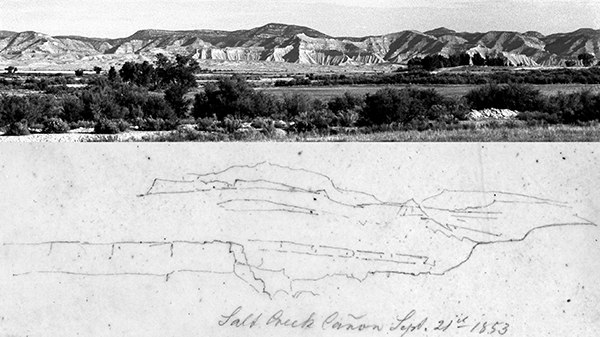 Salt Creek Cañon Sept. 21st 1853